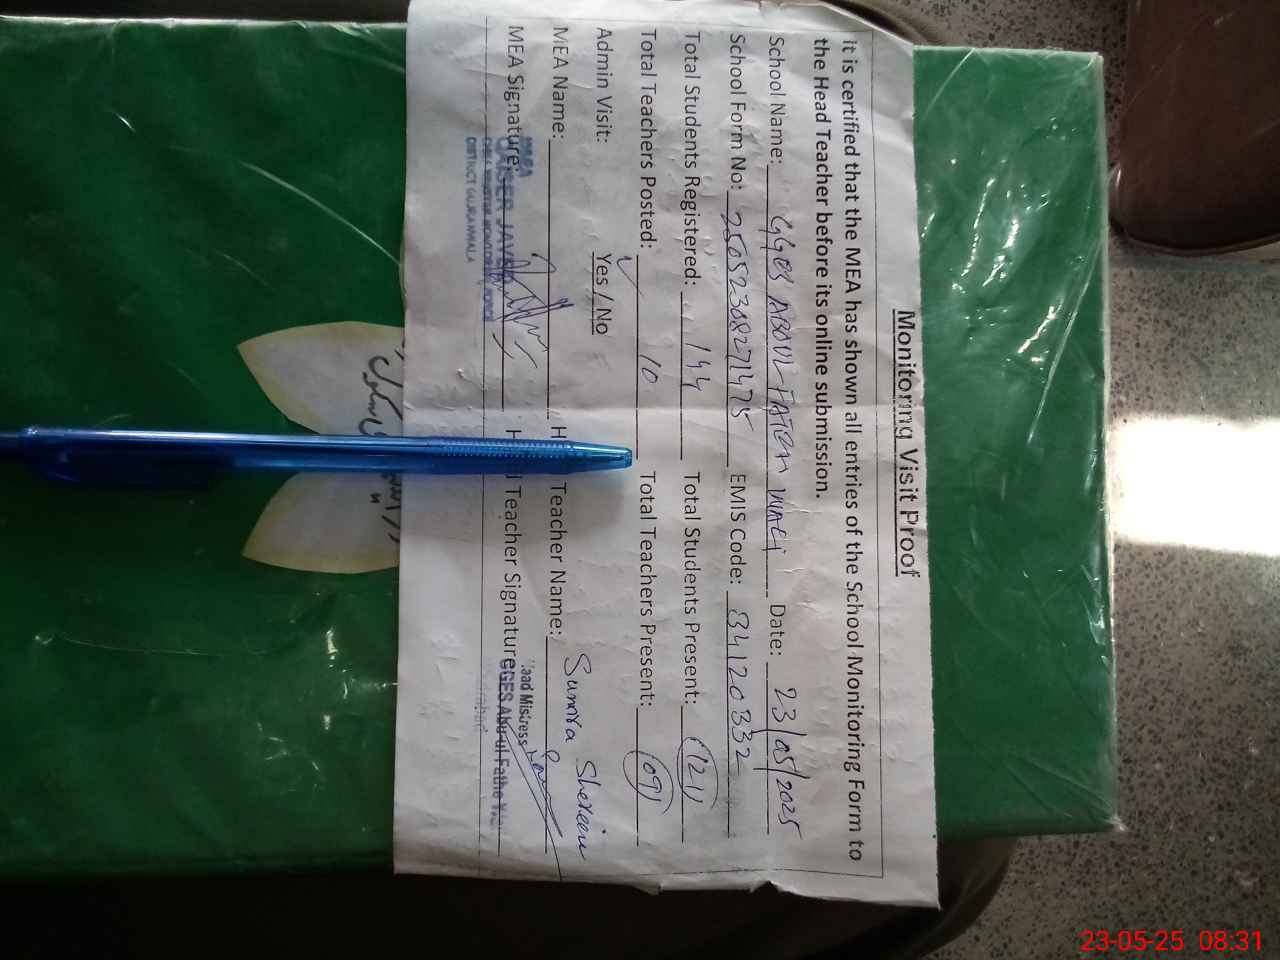 Monitoring Visit Proof
it is certified that the MEA has shown all entries of the School Monitoring Form to
the Head Teacher before its online submission.
School Name: GGES ABDUL FATEH WALI Date: 23/05/2025
School Form No: 25052308271475 EMIS Code: 34120332
Total Students Registered: 144 Total Students Present: 121
Total Teachers Posted: 10 Total Teachers Present: 09
Admin Visit: Yes / No
MEA Name: Teacher Name: Sumra Shereein
MEA Signature: Teacher Signature
MEA
QAISER JAVED
DISTRICT GUJRANWALA
Head Mistress
GGES Abu-ul-Fathe
23-05-25 08:31